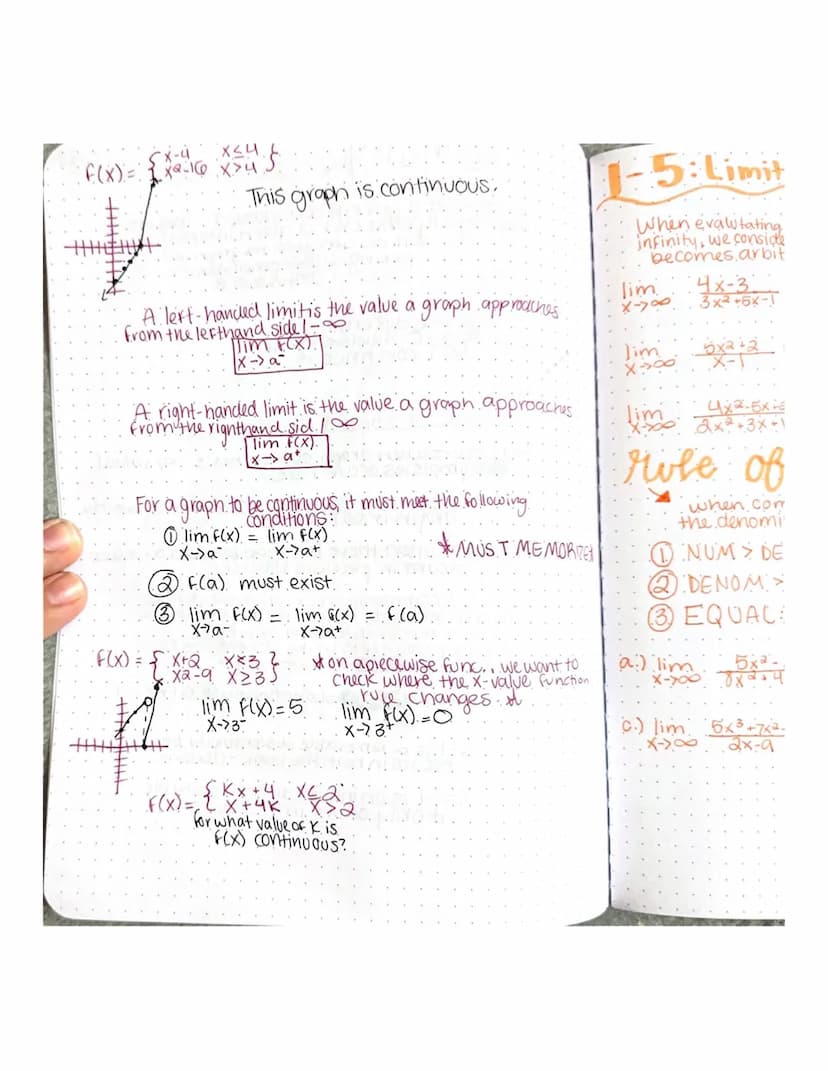 f(x) = { x-4 x≤4 }
{ x2-16 x>4 }
This graph is continuous.
A left-handed limit is the value a graph approaches
from the lefthand side / -∞
lim f(x)
x→a-
A right-handed limit is the value a graph approaches
from the righthand sid / ∞
lim f(x)
x→a+
For a graph to be continuous, it must meet the following
conditions:
① lim f(x) = lim f(x)
x→a- x→a+
*MUST MEMORIZE*
② f(a) must exist
③ lim f(x) = lim f(x) = f(a)
x→a- x→a+
f(x) = { x+2 x<3 }
{ x2-9 x≥3 }
*on a piecewise func., we want to
check where the x-value function
rule changes.*
lim f(x) = 5 lim f(x) = 0
x→3- x→3+
f(x) = { Kx+4 x≤2
{ x+4K x>2
for what value of K is
f(x) continuous?
1-5: Limit
When evalutating
infinity, we conside
becomes arbit
lim 4x-3
x→∞ 3x2+5x-1
lim 5x2+2
x→∞ x-1
lim 4x2-5x
x→∞ 2x2+3x+1
rule of
when com
the denomi
① NUM > DE
② DENOM >
③ EQUAL:
a.) lim 5x2-
x→∞ 8x2+4
c.) lim 5x3+7x2-
x→∞ 2x-9